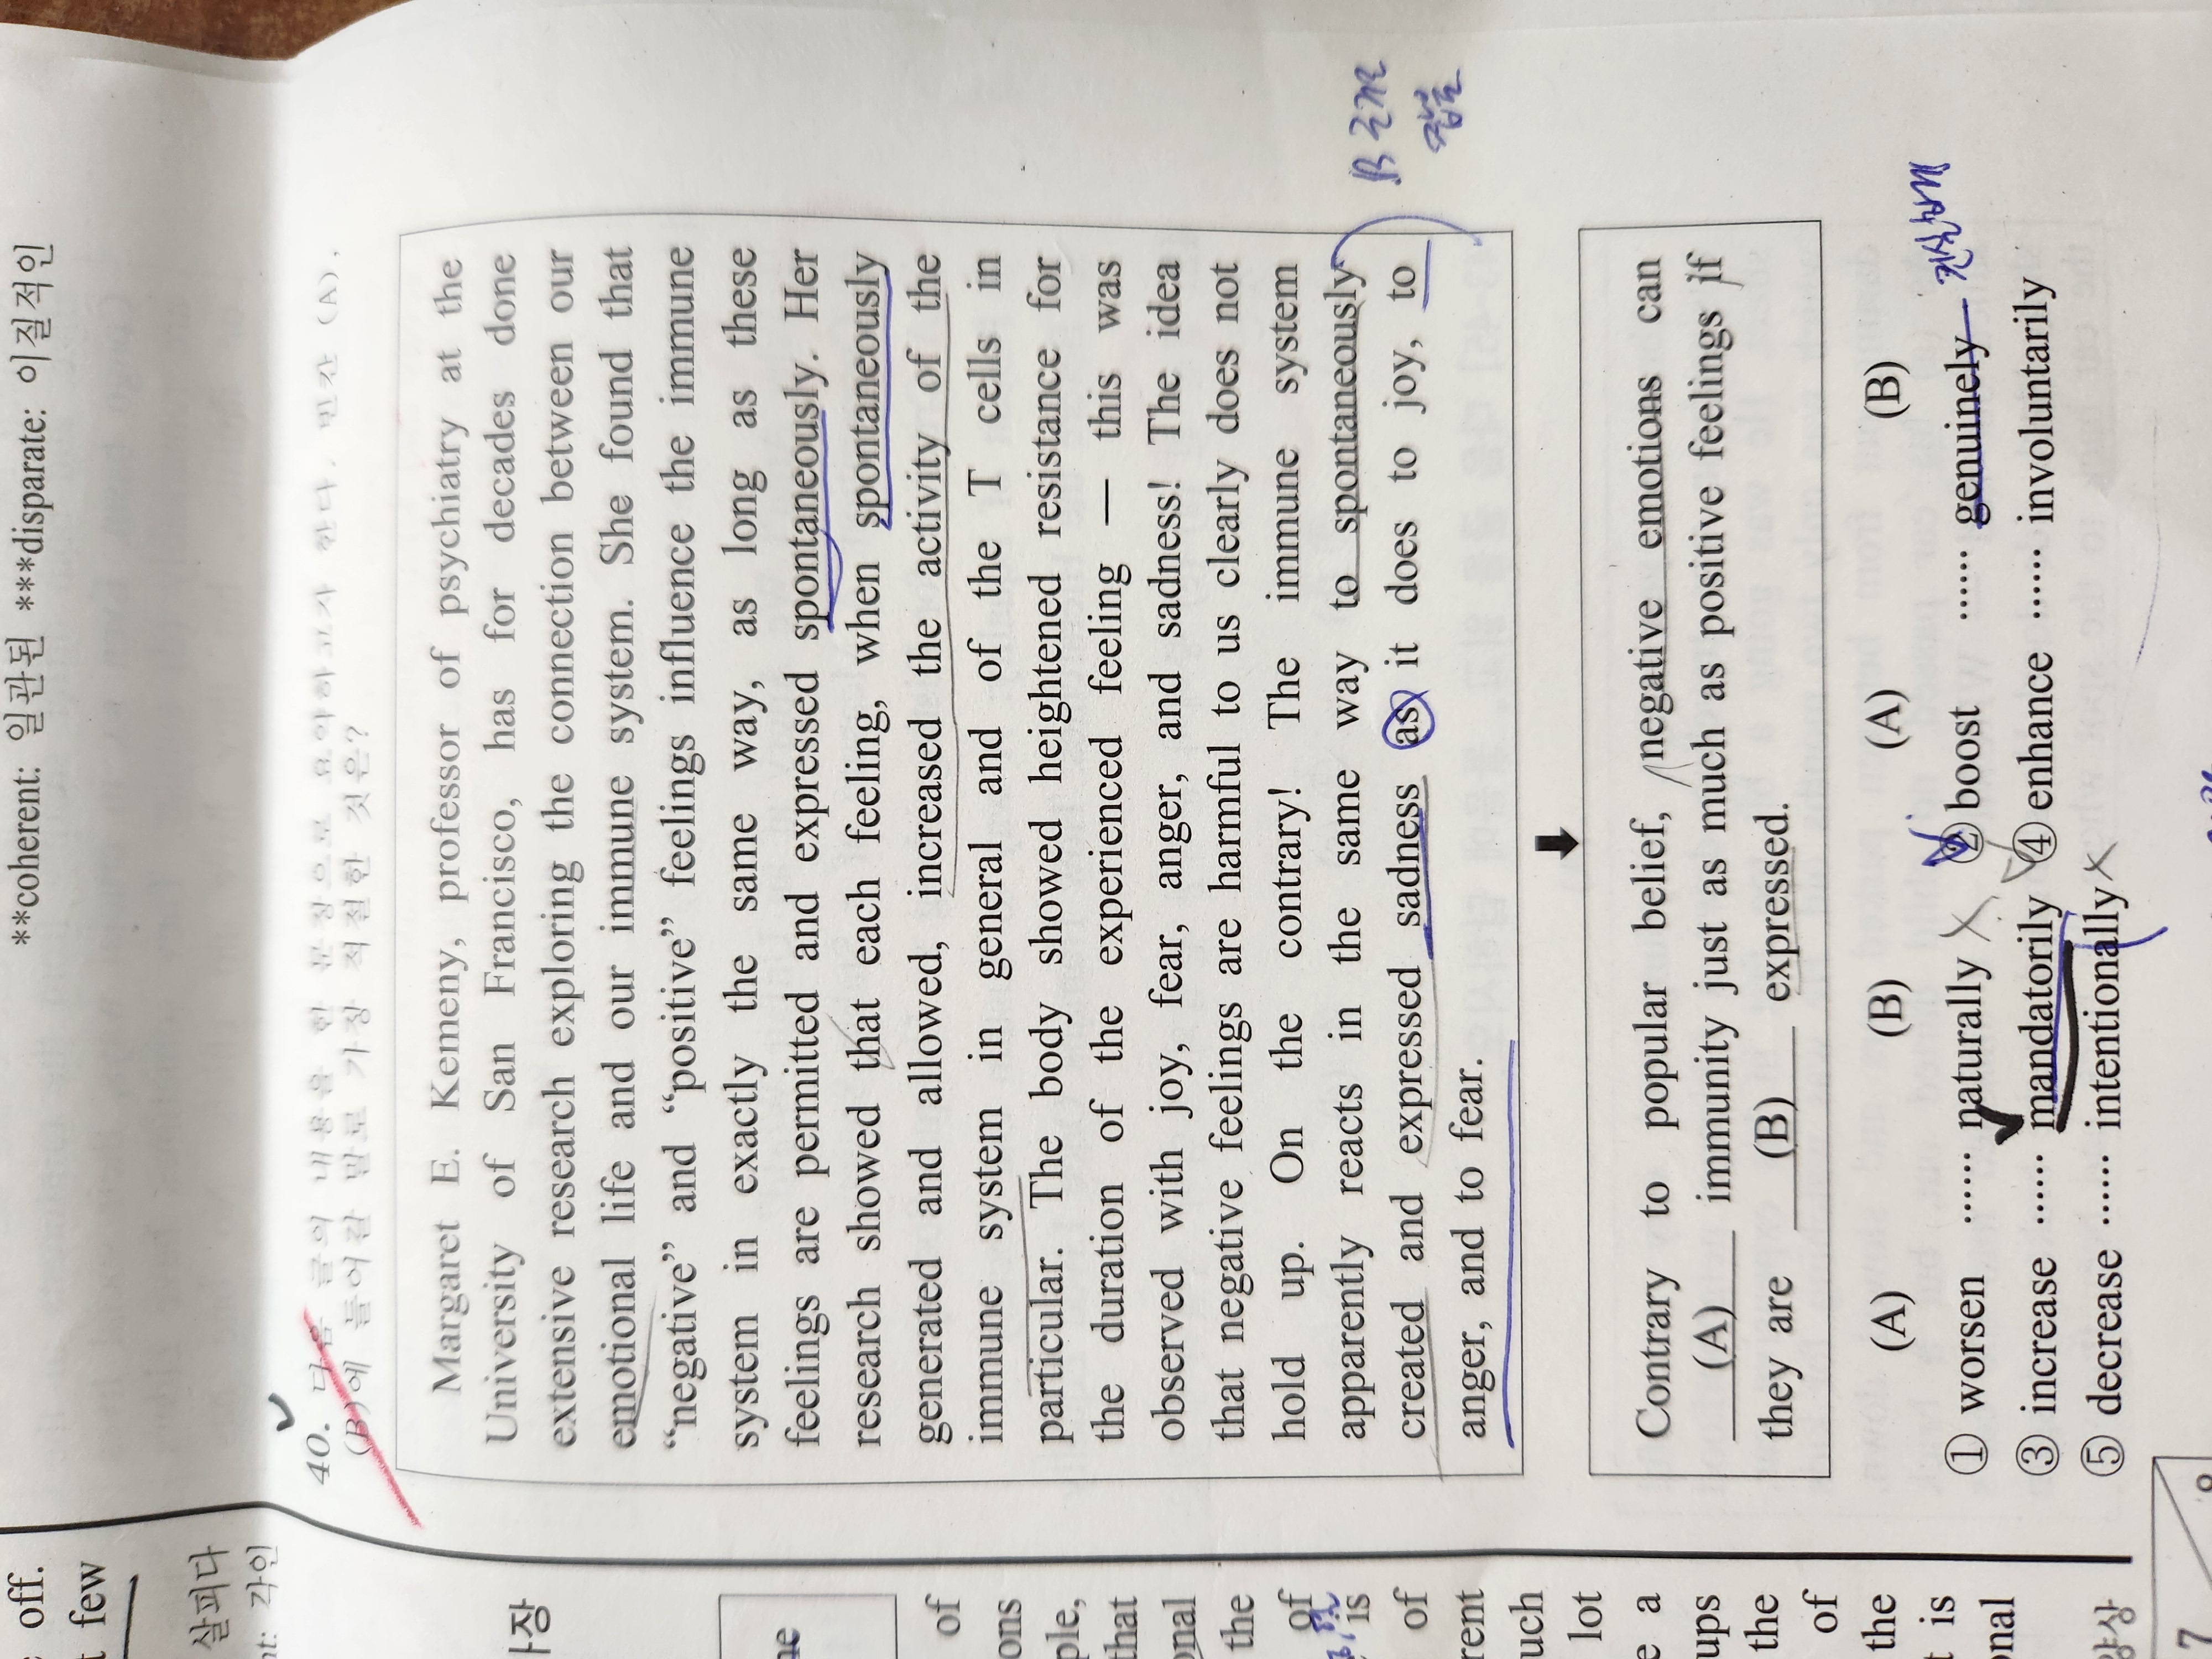 **coherent: 일관된 ***disparate: 이질적인
off.
few
살피다
nt: 각인
사장
of
ons
ple,
that
onal
the
of
is
of
rent
uch
lot
e a
ups
the
of
the
t is
onal
양상
7
8
40. 다음 글의 내용을 한 문장으로 요약하고자 한다. 빈칸 (A),
(B)에 들어갈 말로 가장 적절한 것은?
Margaret E. Kemeny, professor of psychiatry at the
University of San Francisco, has for decades done
extensive research exploring the connection between our
emotional life and our immune system. She found that
“negative” and “positive” feelings influence the immune
system in exactly the same way, as long as these
feelings are permitted and expressed spontaneously. Her
research showed that each feeling, when spontaneously
generated and allowed, increased the activity of the
immune system in general and of the T cells in
particular. The body showed heightened resistance for
the duration of the experienced feeling — this was
observed with joy, fear, anger, and sadness! The idea
that negative feelings are harmful to us clearly does not
hold up. On the contrary! The immune system
apparently reacts in the same way to spontaneously
created and expressed sadness as it does to joy, to
anger, and to fear.
B 근거
Contrary to popular belief, negative emotions can
(A) immunity just as much as positive feelings if
they are (B) expressed.
(A) (B) (A) (B)
① worsen ...... naturally ② boost ...... genuinely 진실되게
③ increase ...... mandatorily ④ enhance ...... involuntarily
⑤ decrease ...... intentionally